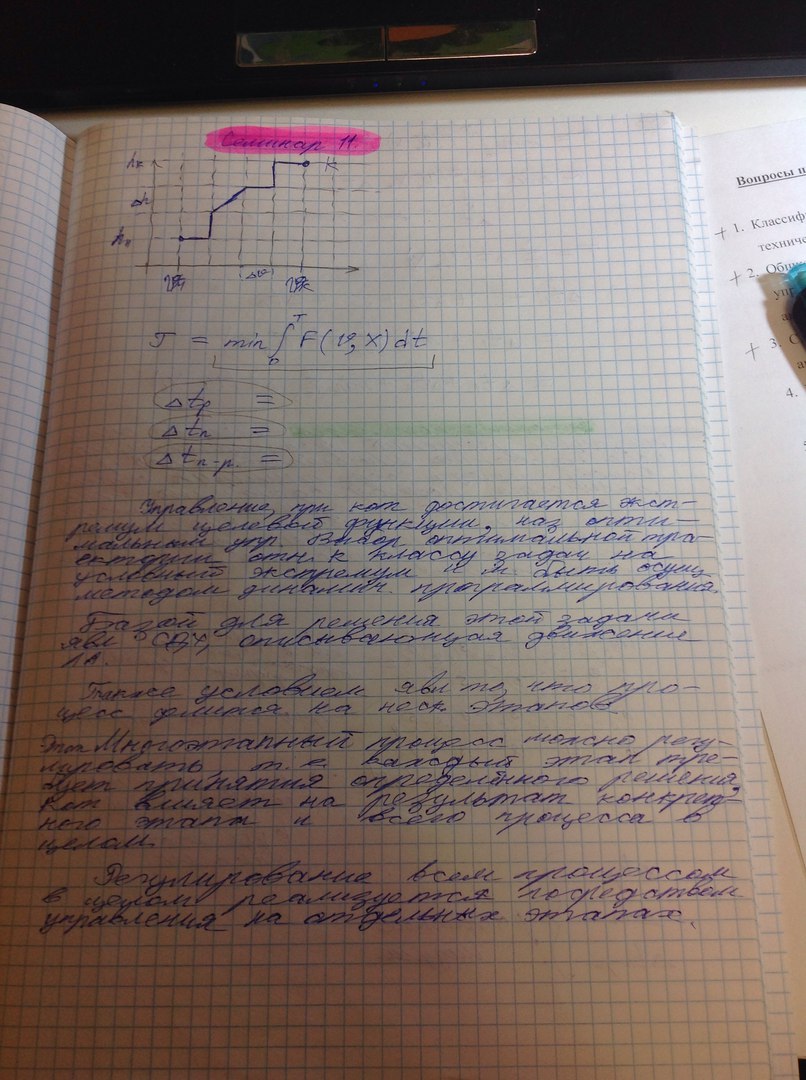 Семинар 11.
hк
К
Δh
hн
Vн
ΔV
Vк
T = min ∫₀ᵀ F(V, X) dt
Δtр =
Δtп =
Δtп-р. =
Управление, при кот достигается экст-
ремум целевой функции, наз опти-
мальным упр. Выбор оптимальной тра-
ектории отн. к классу задач на
условный экстремум и м быть осущ
методом динамич. программирования.
Базой для решения этой задачи
явл СДУ, описывающая движение
ЛА.
Также условием явл то, что про-
цесс делится на неск этапов
Этот Многоэтапный процесс можно регу-
лировать, т.е. каждый этап тре-
бует принятия определённого решения,
кот влияет на результат конкрет-
ного этапа и всего процесса в
целом.
Регулирование всем процессом
в целом реализуется посредством
управления на отдельных этапах.
Вопросы
1. Классиф
техниче
2.
3.
4.